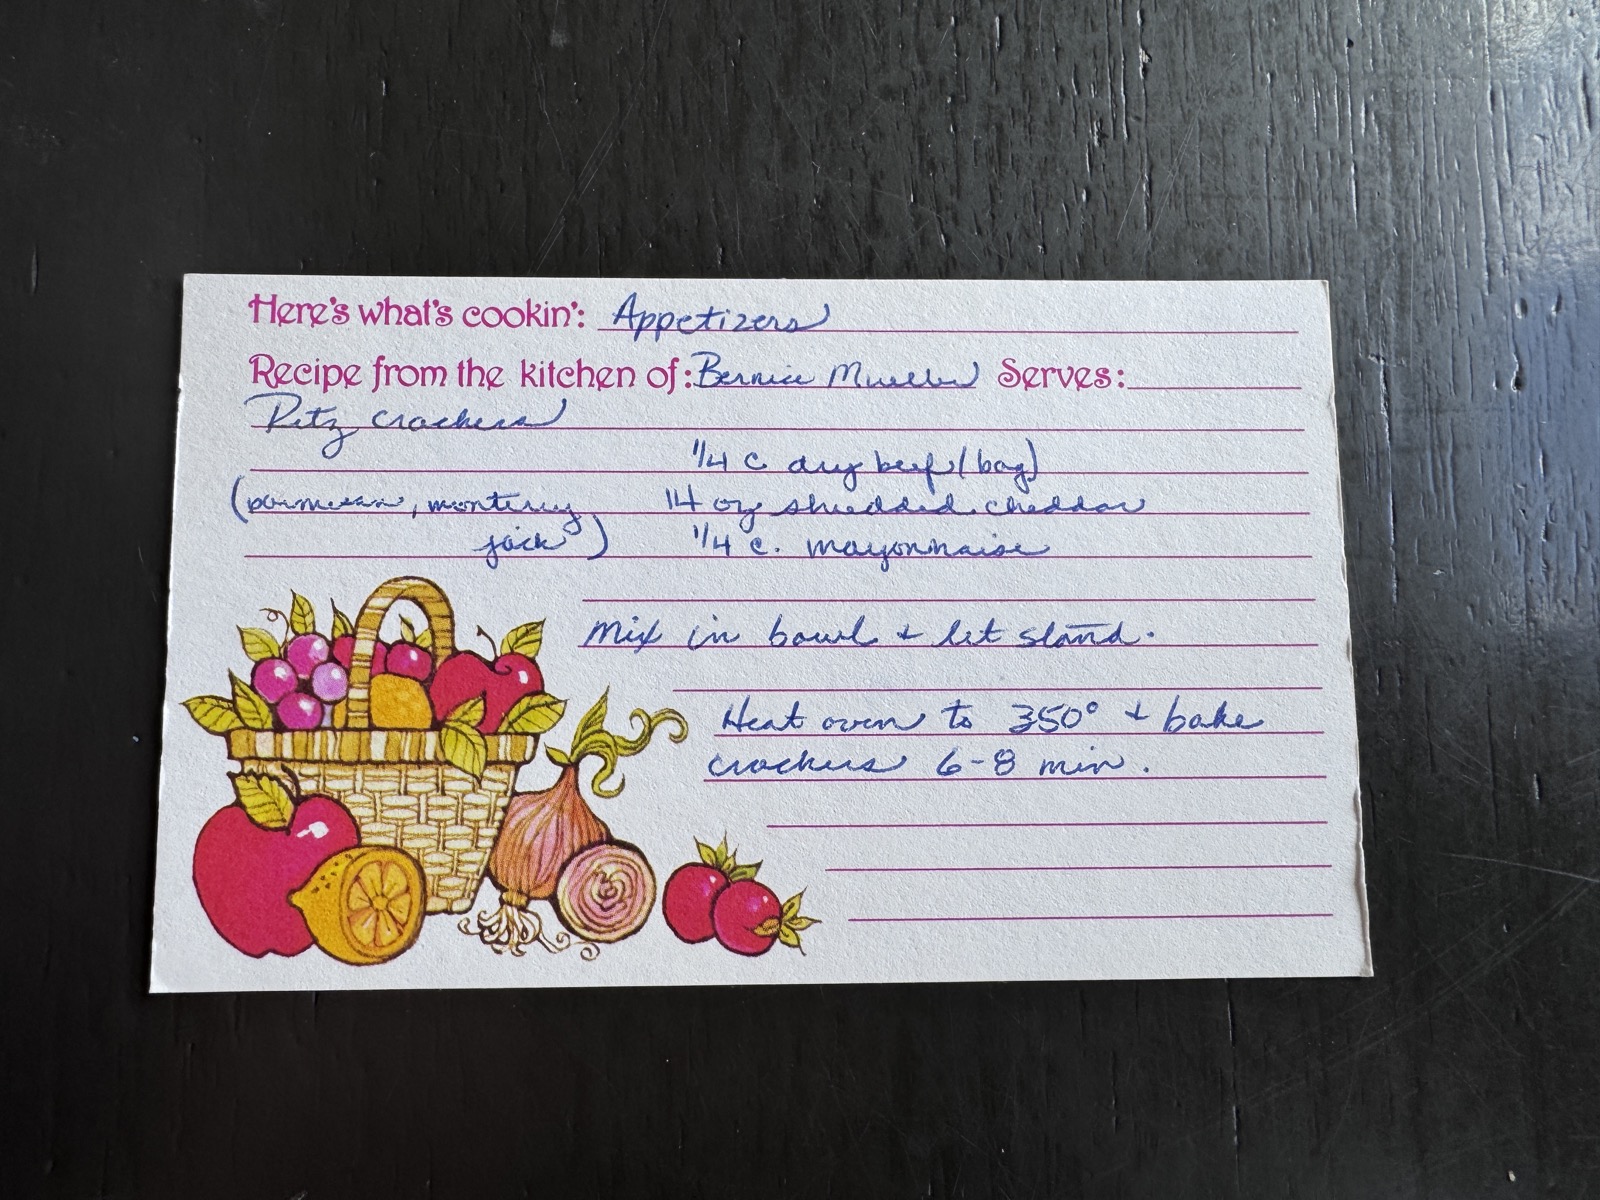 Here's what's cookin': Appetizers
Recipe from the kitchen of: Bernice Mueller Serves:
Ritz crackers
1/4 c dry beef (bag)
(parmesan, monterey 14 oz shredded cheddar
jack) 1/4 c. mayonnaise
Mix in bowl & let stand.
Heat oven to 350° & bake
crackers 6-8 min.